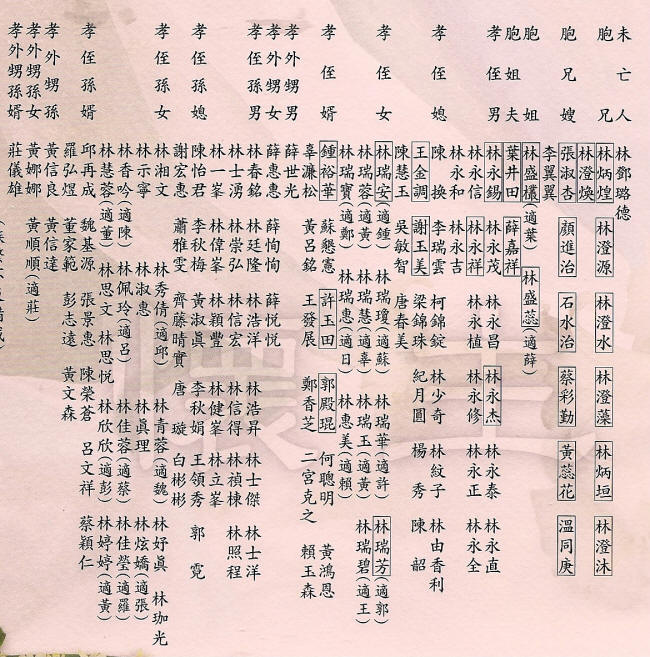 未亡人 林鄧璐德
胞兄 林炳煌 林澄源 林澄水 林澄藻 林炳垣 林澄沐
林澄煥
胞兄嫂 張淑杏 顏進治 石水治 蔡彩勤 黃蕊花 溫同庚
李翼翼
胞姐 林盛欉(適葉) 林盛蕊(適薛)
胞姐夫 葉井田 薛嘉祥
孝侄男 林永錫 林永茂 林永昌 林永杰 林永泰 林永直
林永信 林永祥 林永植 林永修 林永正 林永全
林永和 林永吉
孝侄媳 陳換 李瑞雲 柯錦錠 林少奇 林紋子 林由香利
王金調 謝玉美 梁錦珠 紀月圓 楊秀 陳韶
陳慧玉 吳敏智 唐春美
孝侄女 林瑞安(適鍾) 林瑞瓊(適蘇) 林瑞華(適許) 林瑞芳(適郭)
林瑞蓉(適黃) 林瑞慧(適辜) 林瑞玉(適黃) 林瑞碧(適王)
林瑞寶(適鄭) 林瑞惠(適日) 林惠美(適賴)
孝侄婿 鍾裕華 蘇懇憲 許玉田 郭殿琨 何聰明 黃鴻恩
辜濂松 黃呂銘 王發展 鄭香芝 二宮克之 賴玉森
孝外甥男 薛世光
孝外甥女 薛惠惠 薛恂恂 薛悅悅
孝侄孫男 林春銘 林廷隆 林浩洋 林浩昇 林士傑 林士洋
林士湧 林崇弘 林信宏 林信得 林禎棟 林照程
林一峯 林偉峯 林穎豐 林健峯 林立峯
孝侄孫媳 陳怡君 李秋梅 黃淑眞 李秋娟 王領秀 郭霓
謝宏惠 蕭雅雯 齊藤晴實 唐璇 白彬彬
孝侄孫女 林湘文 林秀倩(適邱) 林青蓉(適魏) 林妤眞 林珈光
林示寧 林淑惠 林眞理 林炫嬌(適張)
林香吟(適陳) 林佩玲(適呂) 林佳蓉(適蔡) 林佳瑩(適羅)
林慧蓉(適董) 林思文 林思悅 林欣欣(適彭) 林婷婷(適黃)
孝侄孫婿 邱再成 魏基源 張景惠 陳榮蒼 呂文祥 蔡穎仁
羅弘煜 董家範 彭志遠 黃文森
孝外甥孫 黃信良 黃信達
孝外甥孫女 黃娜娜 黃順順(適莊)
孝外甥孫婿 莊儀雄